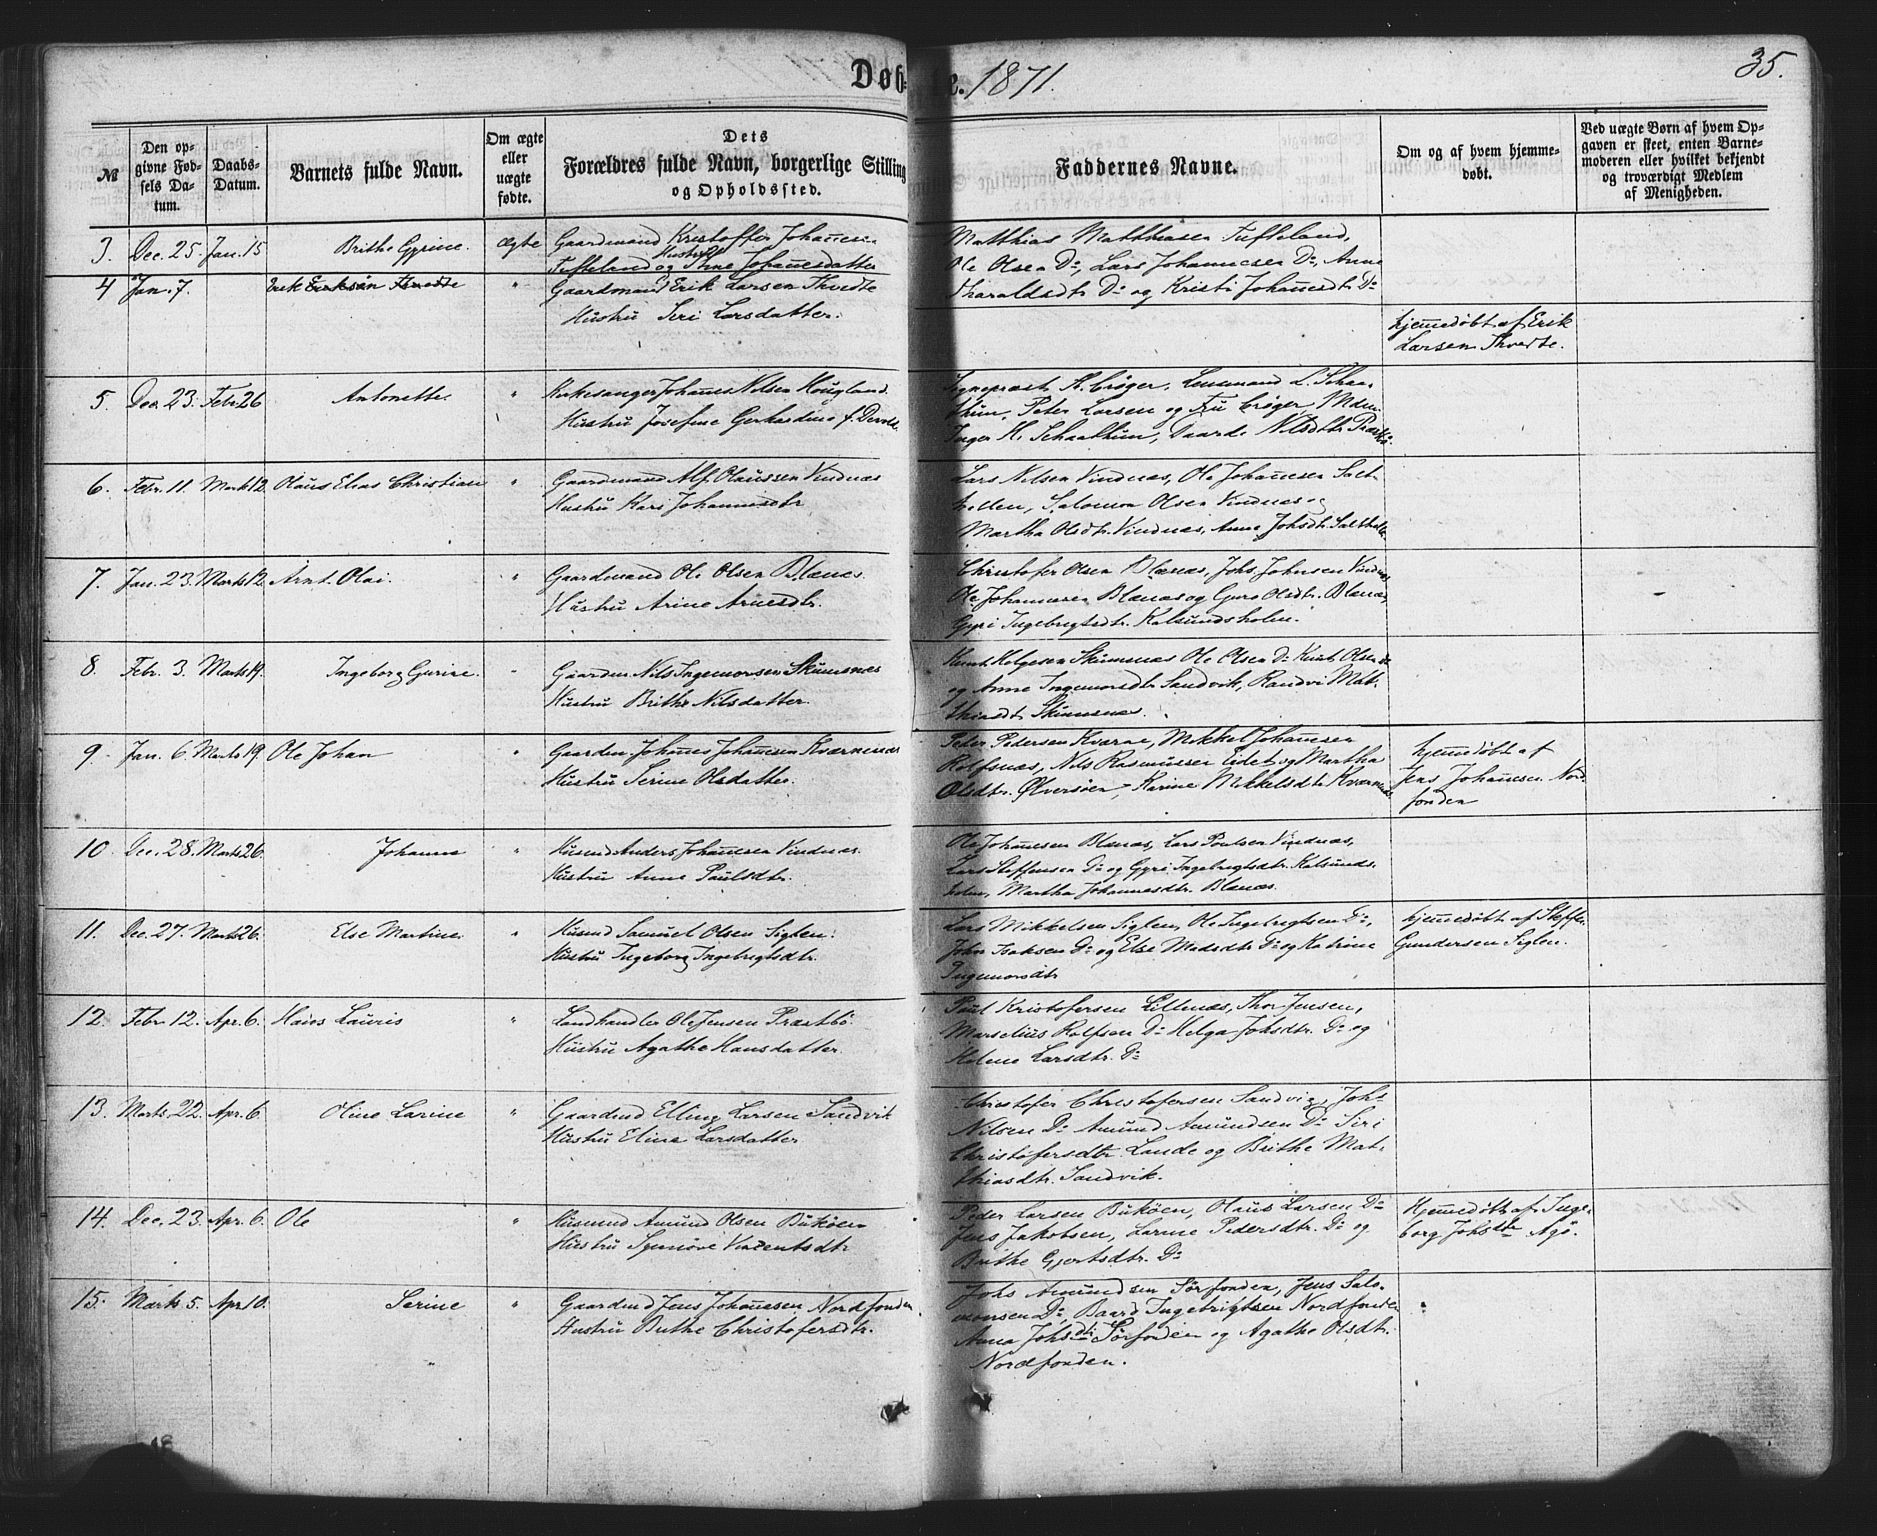 Døb
e. 1871.
35.
№
Den op-
givne Fød-
sels Da-
tum.
Daabs-
Datum.
Barnets fulde Navn.
Om ægte
eller
uægte
fødte.
Dets
Forældres fulde Navn, borgerlige Stilling
og Opholdssted.
Faddernes Navne.
Om og af hvem hjemme-
døbt.
Ved uægte Børn af hvem Op-
gaven er skeet, enten Barne-
moderen eller hvilket bekjendt
og troværdigt Medlem
af Menigheden.
3. Dec. 25. Jan. 15 Brithe Gyrine. ægte Gaardmand Kristoffer Johannesen
Hustru
Tufteland og Stine Johannesdatter
Matthias Matthiasen Tufteland,
Ole Olsen Do, Lars Johannesen Do, Anne
Tharaldsdtr Do og Kristi Johannesdtr Do
4 Jan. 7. Erik Eriksen Thvedte " Gaardmand Erik Larsen Thvedte
Hustru Siri Larsdatter.
hjemmedøbt af Erik
Larsen Thvedte.
5. Dec. 23. Febr 26 Antonette " Kirkesanger Johannes Nilsen Hougland
Hustru Josefine Gerhardine f.
Sognepræst H. Crøger, Lensmand L. Schaa-
thun, Peter Larsen og Fru Crøger, Mdm
Inger H. Schaathun, Nilsdtr
6. Febr. 11. Marts 12. Olaus Elias Christian " Gaardmand Alf Olaussen Vindnæs
Hustru Kari Johannesdtr
Lars Nilsen Vindnæs, Ole Johannesen Salt-
hellen, Salomon Olsen Vindnæs og
Martha Olsdtr. Vindnæs, Anne Johsdtr. Salthelle
7. Jan. 23. Marts 12. Arnt Olai. " Gaardmand Ole Olsen Blænes
Hustru Arine Arnesdtr.
Christofer Olsen Blænæs, Johs Johnsen Vindnæs
Ole Johannesen Blænæs og Guro Olsdtr. Blænæs,
Gyri Ingebrigtsdtr. Kalsundsholm.
8. Febr. 3. Marts 19. Ingeborg Gurine. " Gaardm. Nils Ingemorsen Skumsnes
Hustru Brithe Nilsdatter.
Knut Helgesen Skumsnæs Ole Olsen Do Knut Olsen do
og Anne Ingemorsdtr Sandvik, Randvi Mat-
thiasdtr Skumsnæs.
9. Jan. 6. Marts 19. Ole Johan " Gaardm. Johannes Johannesen Kværnenæs
Hustru Serine Olsdatter.
Peder Pedersen Kværne, Mikkel Johannesen
Rolfsnæs, Nils Rasmussen Eidet og Martha
Olsdtr. Ølversøen, Karine Mikkelsdtr Kværnenæs
hjemmedøbt af
Jens Johannesen Nord-
fonden
10. Dec. 28. Marts 26. Johanne " Husmd Anders Johannesen Vindnæs
Hustru Anne Paulsdtr.
Ole Johannesen Blænæs, Lars Poulsen Vindnæs,
Lars Steffensen Do og Gyri Ingebrigtsdtr. Kalsunds-
holm, Martha Johannesdtr. Blænæs.
11. Dec. 27. Marts 26. Else Martine. " Husmd Samuel Olsen Siglen.
Hustru Ingeborg Ingebrigtsdtr.
Lars Mikkelsen Siglen, Ole Ingebrigtsen Do,
John Isaksen Do og Else Madsdtr Do og Katrine
Ingemorsdtr
hjemmedøbt af Steffen
Gundersen Siglen.
12. Febr 12. Apr. 6. Hans Lauris " Landhandler Ole Jensen Præstbø
Hustru Agathe Hansdatter.
Paul Kristofersen Lillenæs, Thor Jensen,
Marselius Rolfsen Do Helga Johsdtr. Do og
Helene Larsdtr. Do
13. Marts. 22. Apr. 6. Oline Larine " Gaardmd Elling Larsen Sandvik
Hustru Eline Larsdatter
Christofer Christofersen Sandvig, Johs
Nilsen Do Amund Amundsen Do Siri
Christofersdtr. Lande og Brithe Mat-
thiasdtr. Sandvik.
14. Dec. 23. Apr. 6. Ole " Husmd Amund Olsen Bukøen
Hustru Synnøve Vincentsdtr
Peder Larsen Bukøen, Olaus Larsen Do
Jens Jakobsen, Larine Pedersdtr. Do og
Brithe Gjertsdtr. Do
Hjemmedøbt af Inge-
borg Johsdtr Agø.
15. Marts. 5. Apr 10. Serine " Gaardmd Jens Johannesen Nordfonden
Hustru Brithe Christofersdtr.
Johs Amundsen Sørfonden, Jens Salo-
monsen Do, Baard Ingebrigtsen Nordfonden
Anna Johsdtr Sørfonden og Agathe Olsdtr.
Nordfonden.